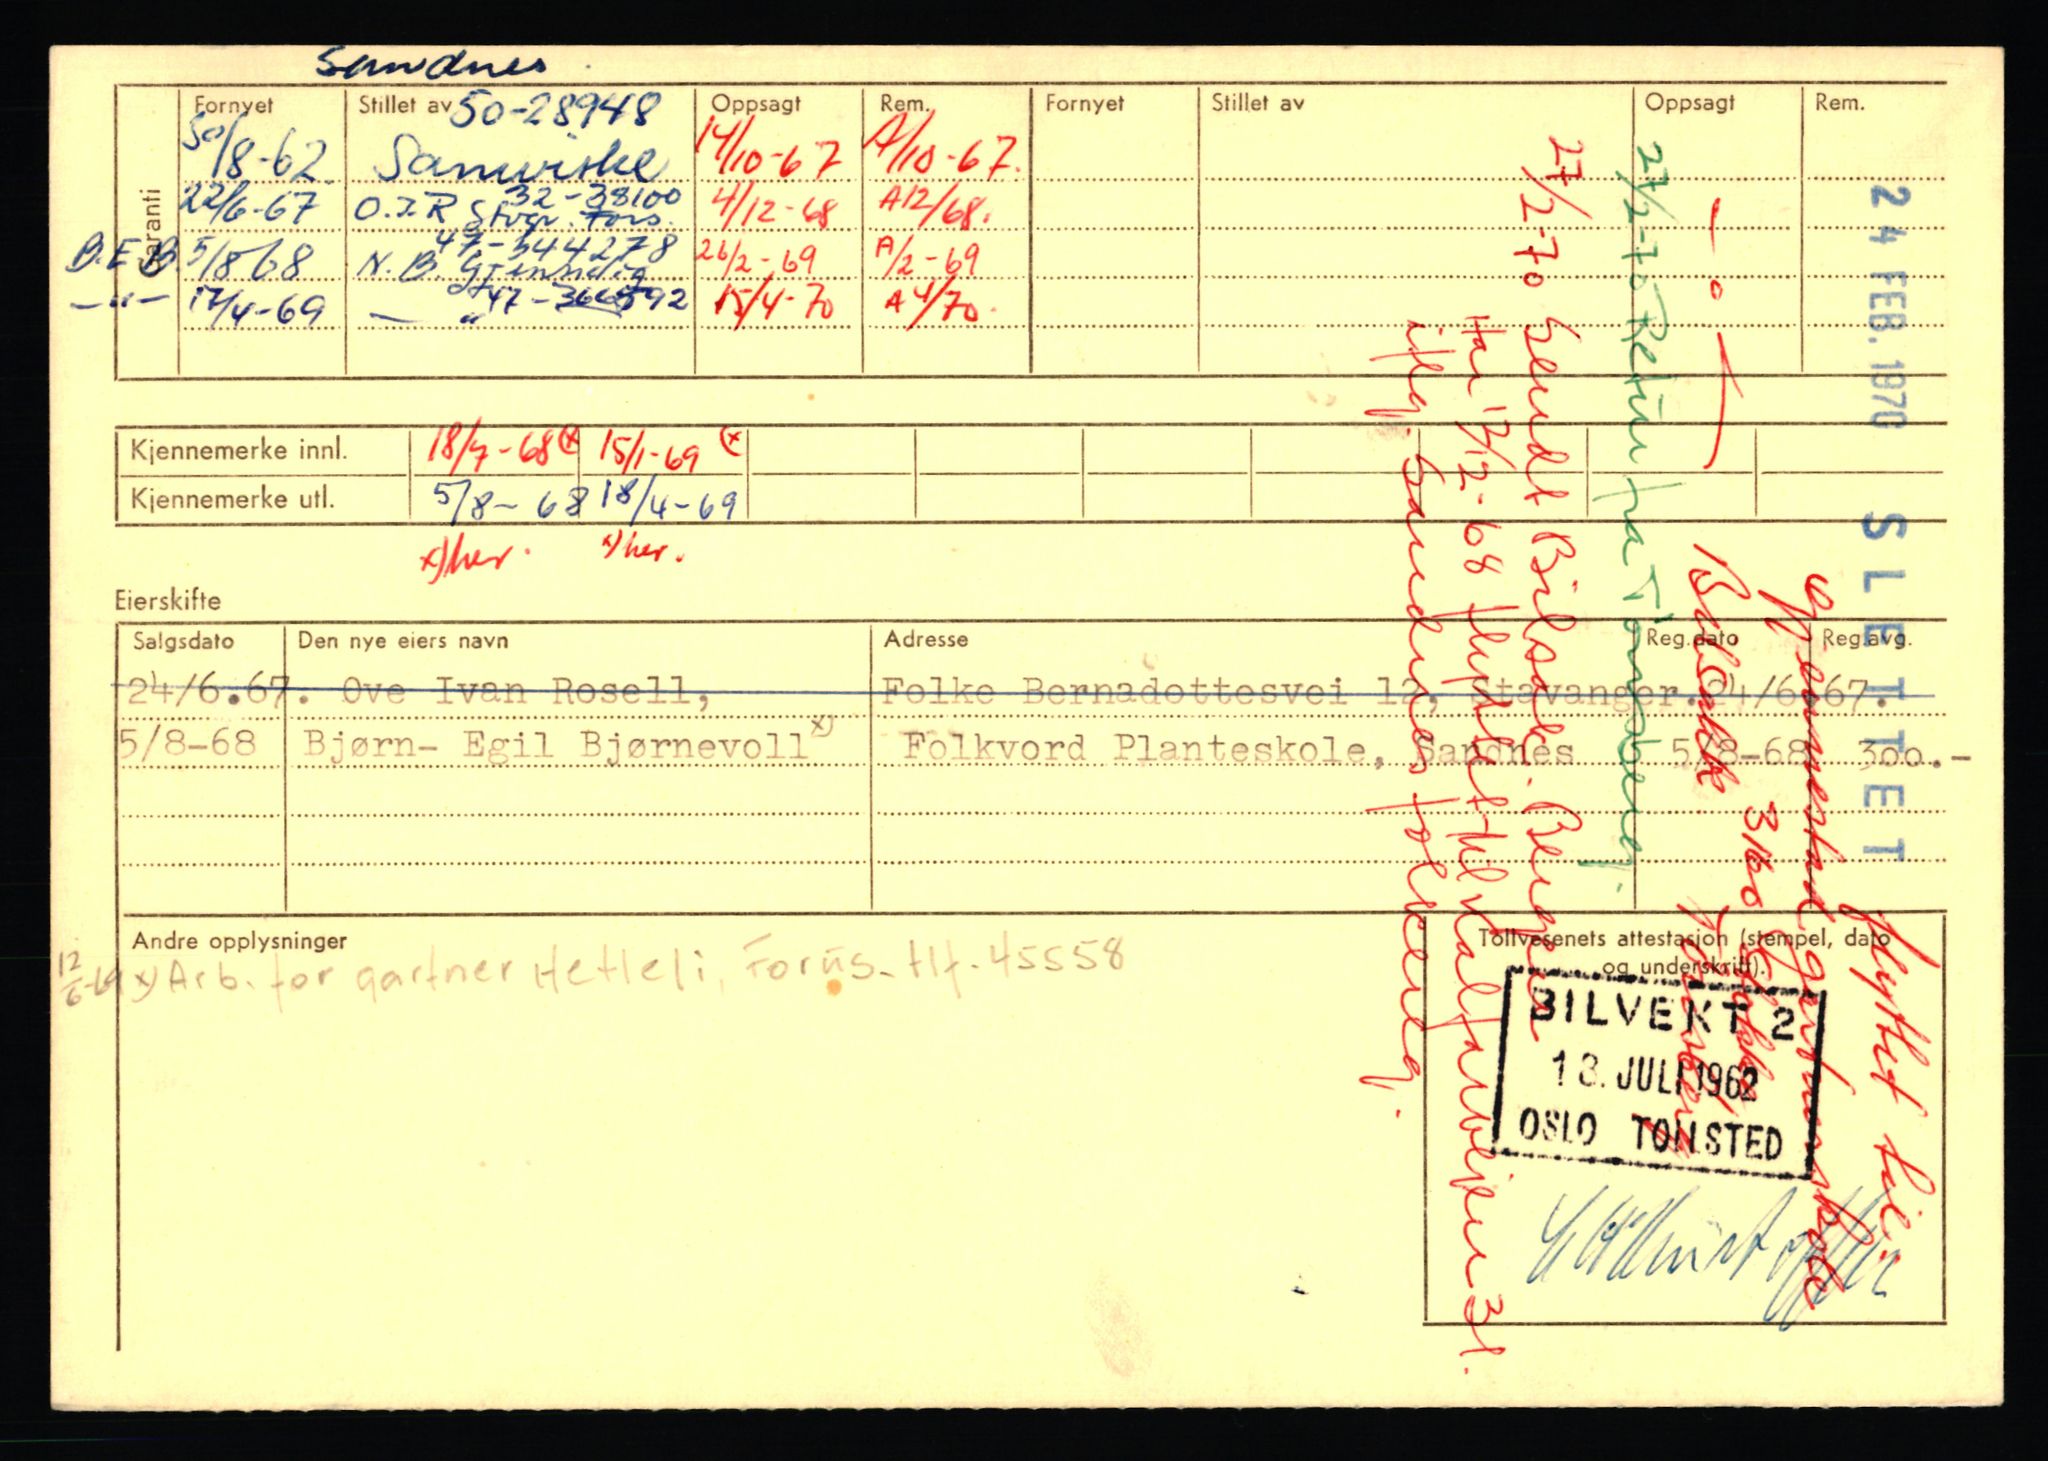 Sandnes
Garanti
Fornyet Stillet av Oppsagt Rem. Fornyet Stillet av Oppsagt Rem.
50-28948
/8-62 Samvirke 14/10-67 A/10-67.
22/6-67 O.I.R 32-38100 Stvgr. Fors. 4/12-68 A12/68.
B.E.B. 5/8 68 N.B. Gjensidig 47-344278 26/2-69 A/2-69
—"— 17/4-69 — " 47- 15/4-70 A4/70.
Kjennemerke innl. 18/7-68 (x 15/1-69 (x
Kjennemerke utl. 5/8-68 18/4-69
x) her. x) her.
Eierskifte
Salgsdato Den nye eiers navn Adresse Reg.dato Reg.avg.
24/6.67. Ove Ivan Rosell, Folke Bernadottesvei 12, Stavanger. 24/6.67.
5/8-68 Bjørn- Egil Bjørnevoll x) Folkvord Planteskole, Sandnes 5/8-68 300.-
Andre opplysninger
12/6-69 x) Arb. for gartner Hetleli, Forus. tlf. 45558
Tollvesenets attestasjon (stempel, dato
og underskrift).
BILVEKT 2
13. JULI 1962
OSLO TOLLSTED
24 FEB. 1970 SLETTET
flyttet til
Gjennestad gartnerskole
3160 Stokke
Tønsberg
27/2-70 Retur fra Tønsberg.
27/2-70 Sendt Bilsak. Bergen
Har 13/12-68 flyttet til Kalfarveien 31.
iflg. Sandnes folkereg.